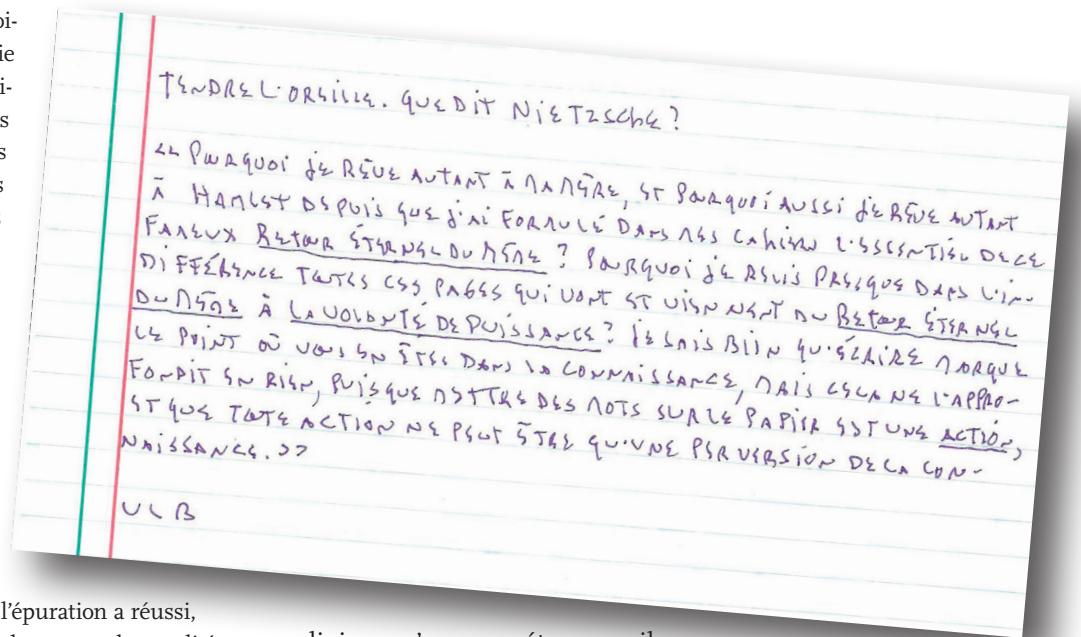 oi-
ie
i-
s
s
s
TENDRE L'OREILLE. QUE DIT NIETZSCHE?
<< POURQUOI JE RÊVE AUTANT À MA MÈRE, ET POURQUOI AUSSI JE RÊVE AUTANT
À HAMLET DEPUIS QUE J'AI FORMULÉ DANS MES CAHIERS L'ESSENTIEL DE CE
FAMEUX RETOUR ÉTERNEL DU MÊME? POURQUOI JE RELIS PRESQUE DANS L'IN-
DIFFÉRENCE TOUTES CES PAGES QUI VONT ET VIENNENT DU RETOUR ÉTERNEL
DU MÊME À LA VOLONTÉ DE PUISSANCE? JE SAIS BIEN QU'ÉCRIRE MARQUE
LE POINT OÙ VOUS EN ÊTES DANS LA CONNAISSANCE, MAIS CELA NE L'APPRO-
FONDIT EN RIEN, PUISQUE METTRE DES MOTS SUR LE PAPIER EST UNE ACTION,
ET QUE TOUTE ACTION NE PEUT ÊTRE QU'UNE PERVERSION DE LA CON-
NAISSANCE. >>
VLB
l'épuration a réussi,